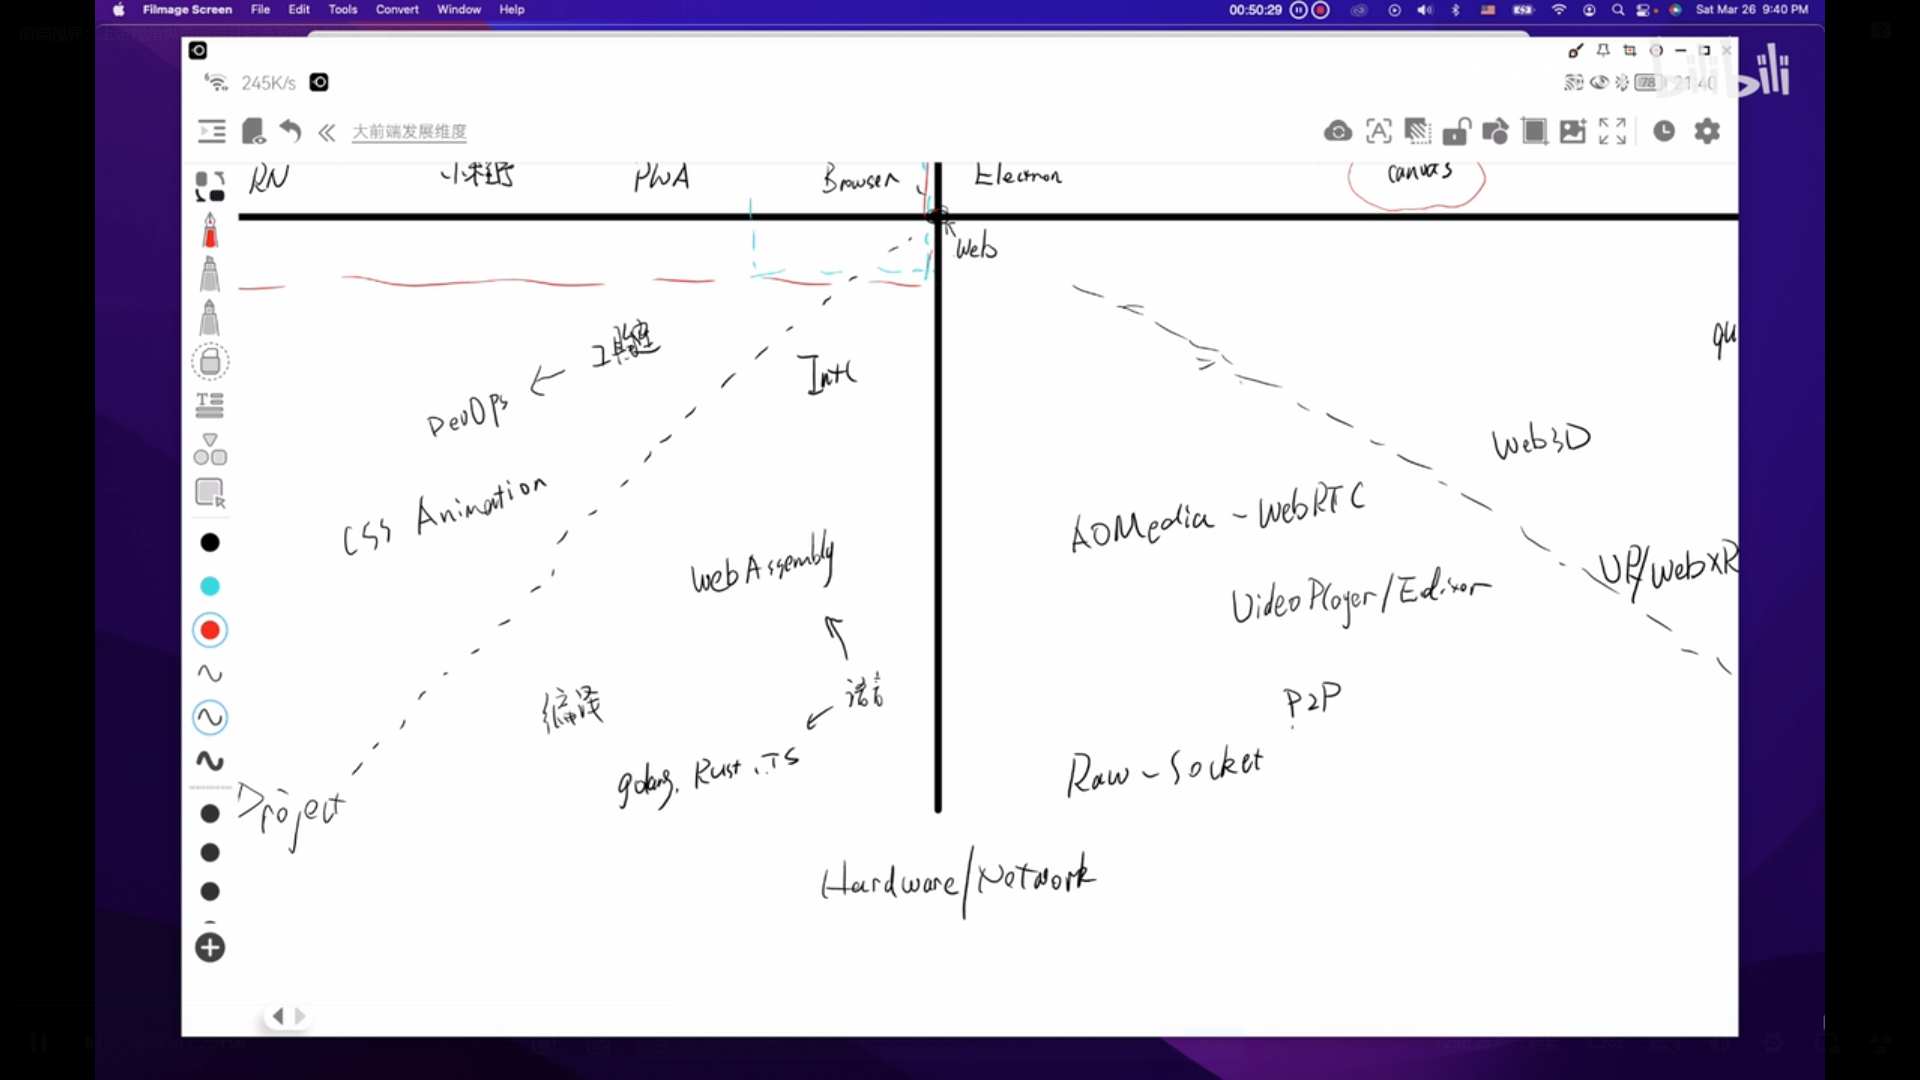 Filmage Screen File Edit Tools Convert Window Help 00:50:29 Sat Mar 26 9:40 PM
245K/s 78 21:40
bilibili
大前端发展维度
RN 小程序 PWA Browser Electron canvas
Web
工具链
Intl
qu
DevOps
Web3D
CSS Animation
AOMedia - WebRTC
WebAssembly
VR/WebXR
VideoPlayer/Editor
语言
P2P
编译
golang, Rust, TS
Raw-Socket
Project
Hardware/Network